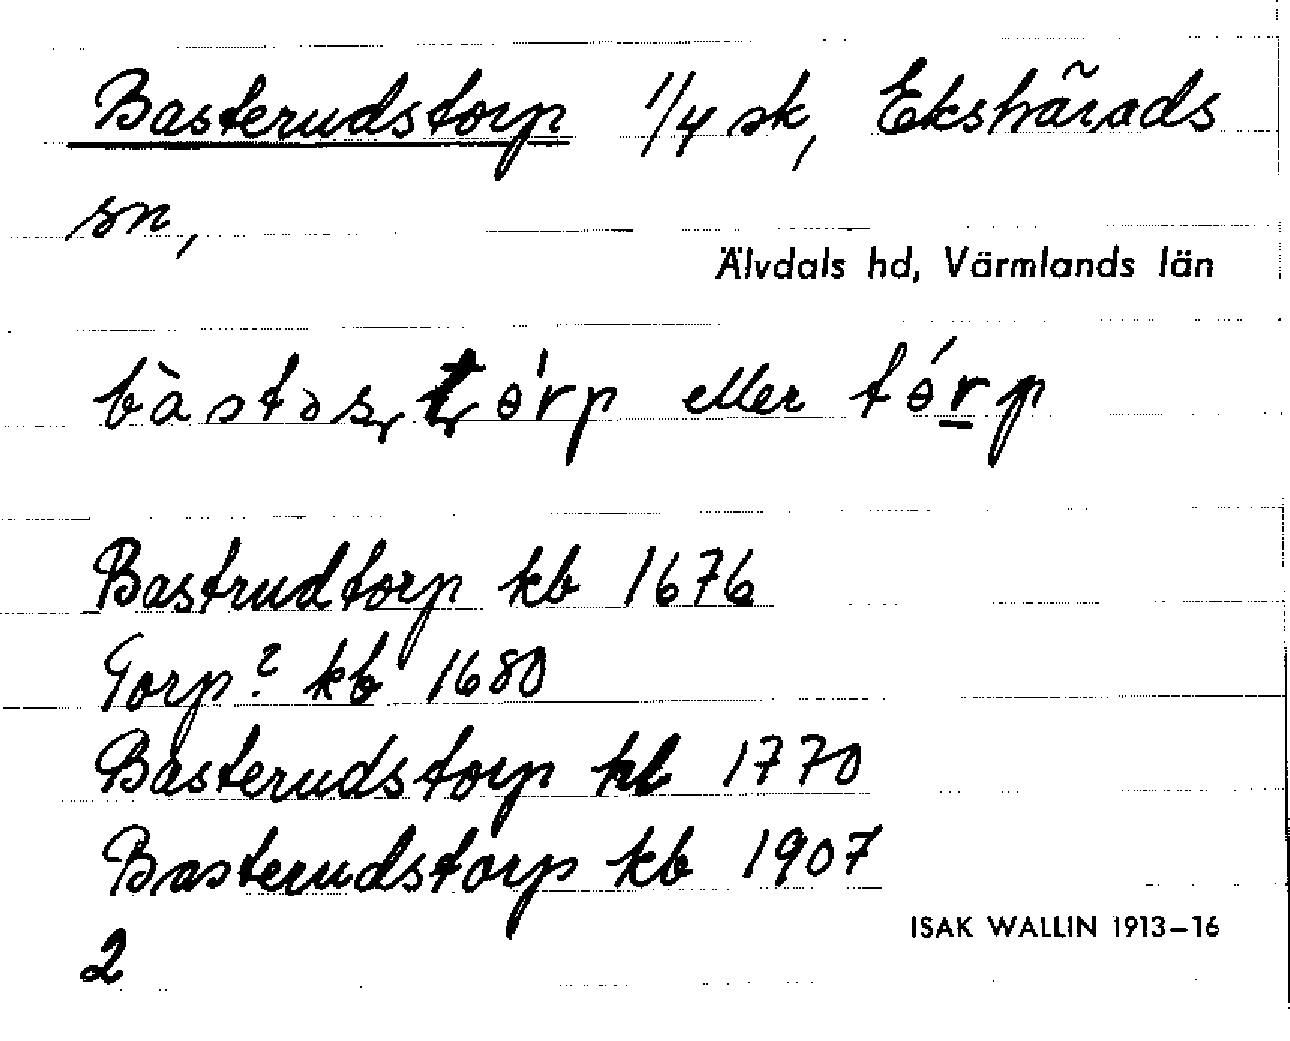 Basterudstorp 1/4 sk, Ekshärads
sn,
Älvdals hd, Värmlands län
eller
Bastrudtorp kb 1676
Torp? kb 1680
Basterudstorp kb 1770
Basterudstorp kb 1907
ISAK WALLIN 1913–16
2